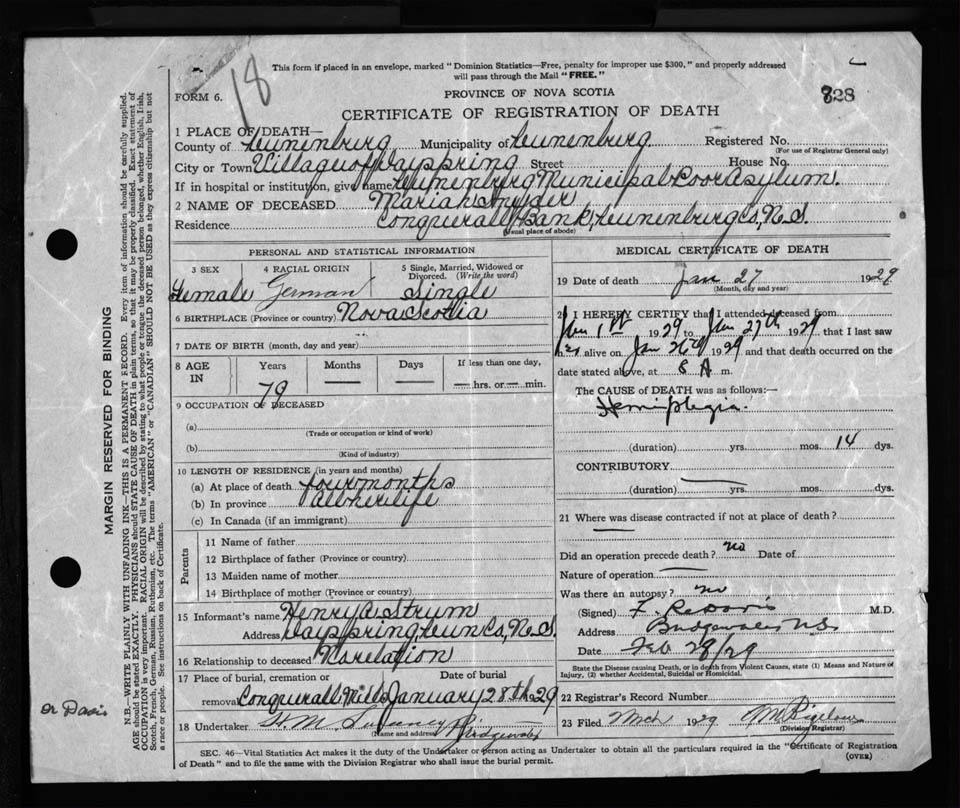 18
This form if placed in an envelope, marked "Dominion Statistics—Free, penalty for improper use $300," and properly addressed
will pass through the Mail "FREE."
FORM 6.
PROVINCE OF NOVA SCOTIA
828
CERTIFICATE OF REGISTRATION OF DEATH
1 PLACE OF DEATH—
County of Lunenburg Municipality of Lunenburg Registered No.
(For use of Registrar General only)
City or Town Village of Dayspring Street House No.
If in hospital or institution, give name Lunenburg Municipal Poor Asylum.
2 NAME OF DECEASED Mariah Snyder
Residence Conquerall Bank, Lunenburg Co, N.S.
(Usual place of abode)
PERSONAL AND STATISTICAL INFORMATION
3 SEX 4 RACIAL ORIGIN 5 Single, Married, Widowed or
Divorced. (Write the word)
Female German Single
6 BIRTHPLACE (Province or country) Nova Scotia
7 DATE OF BIRTH (month, day and year)
8 AGE IN Years Months Days If less than one day,
79 — — — hrs. or — min.
9 OCCUPATION OF DECEASED
(a)
(Trade or occupation or kind of work)
(b)
(Kind of industry)
10 LENGTH OF RESIDENCE (in years and months)
(a) At place of death four months
(b) In province all her life
(c) In Canada (if an immigrant)
Parents
11 Name of father
12 Birthplace of father (Province or country)
13 Maiden name of mother
14 Birthplace of mother (Province or country)
15 Informant's name Henry A Strum
Address Dayspring Lun Co, N.S.
16 Relationship to deceased No relation
17 Place of burial, cremation or removal Date of burial
Conquerall Mills January 28th 1929
18 Undertaker Bridgewater
(Name and address)
MEDICAL CERTIFICATE OF DEATH
19 Date of death Jan 27 1929
(Month, day and year)
20 I HEREBY CERTIFY that I attended deceased from
Jan 1st 1929 to Jan 27th 1929 that I last saw
her alive on Jan 26th 1929 and that death occurred on the
date stated above, at 8 A m.
The CAUSE OF DEATH was as follows:—
Hemiplegia.
(duration) yrs. mos. 14 dys.
CONTRIBUTORY
(duration) yrs. mos. dys.
21 Where was disease contracted if not at place of death?
Did an operation precede death? no Date of
Nature of operation —
Was there an autopsy? no
(Signed) F. R. Davis M.D.
Address Bridgewater N.S.
Date Feb 28/29
State the Disease causing Death, or in death from Violent Causes, state (1) Means and Nature of
Injury, (2) whether Accidental, Suicidal or Homicidal.
22 Registrar's Record Number
23 Filed Mch 1929 Bigelow
(Division Registrar)
SEC. 46—Vital Statistics Act makes it the duty of the Undertaker or person acting as Undertaker to obtain all the particulars required in the "Certificate of Registration
of Death" and to file the same with the Division Registrar who shall issue the burial permit.
(OVER)
MARGIN RESERVED FOR BINDING
N.B.—WRITE PLAINLY, WITH UNFADING INK—THIS IS A PERMANENT RECORD. Every item of information should be carefully supplied.
AGE should be stated EXACTLY. PHYSICIANS should STATE CAUSE OF DEATH in plain terms, so that it may be properly classified. Exact statement of
OCCUPATION is very important. RACIAL ORIGIN will be described by stating to what people or tongue the deceased person belonged, whether English, Irish,
Scotch, French, German, Russian, Ruthenian, etc. The terms "AMERICAN" or "CANADIAN" SHOULD NOT BE USED as they express citizenship but not
a race or people. See instructions on back of Certificate.
Dr Davis